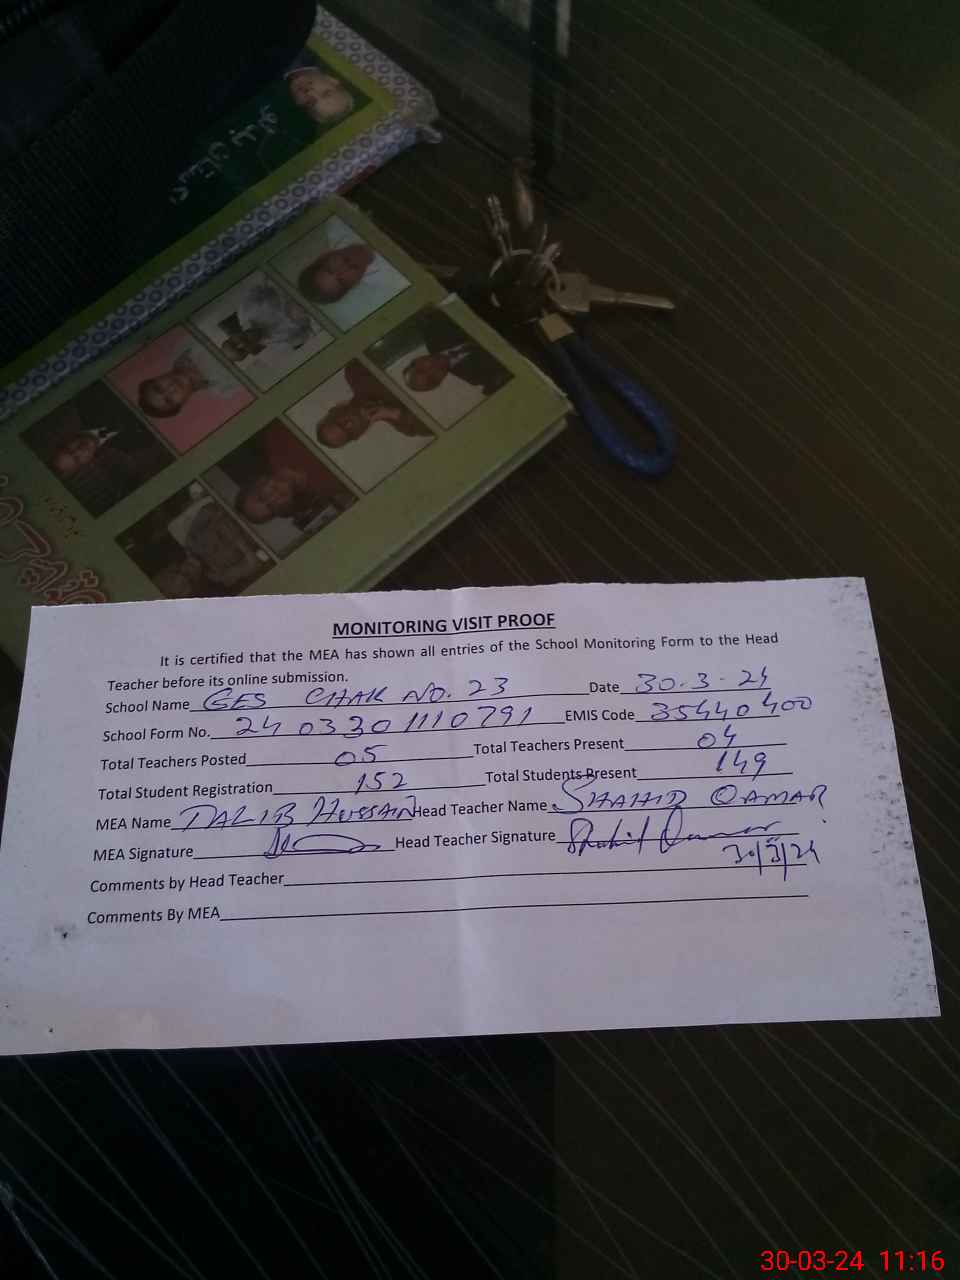 MONITORING VISIT PROOF
It is certified that the MEA has shown all entries of the School Monitoring Form to the Head
Teacher before its online submission.
School Name GES CHAK NO. 23 Date 30.3.24
School Form No. 240330 1110791 EMIS Code 35440400
Total Teachers Posted 05 Total Teachers Present 04
Total Student Registration 152 Total Students Present 149
MEA Name TALIB HUSSAIN Head Teacher Name SHAHID QAMAR
MEA Signature Head Teacher Signature Shahid Qamar
30/3/24
Comments by Head Teacher
Comments By MEA
30-03-24 11:16